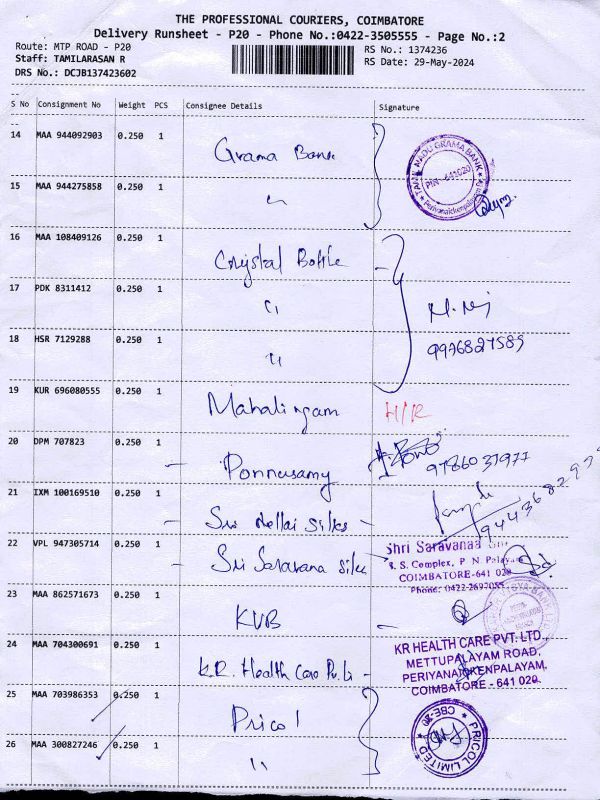 THE PROFESSIONAL COURIERS, COIMBATORE
Delivery Runsheet - P20 - Phone No.:0422-3505555 - Page No.:2
Route: MTP ROAD - P20
RS No.: 1374236
Staff: TAMILARASAN R
RS Date: 29-May-2024
DRS No.: DCJB137423602
S No Consignment No Weight PCS Consignee Details Signature
14 MAA 944092903 0.250 1 Grama Bank
TAMIL NADU GRAMA BANK
PIN - 641020
Periyanaickenpalayam
15 MAA 944275858 0.250 1 "
16 MAA 108409126 0.250 1 Crystal Bottle -
17 PDK 8311412 0.250 1 "
18 HSR 7129288 0.250 1 "
9976827589
19 KUR 696080555 0.250 1 Mahalingam H/R
20 DPM 707823 0.250 1 - Ponnusamy
9786031977
21 IXM 100169510 0.250 1 - Sri Nellai Silks -
22 VPL 947305714 0.250 1 - Sri Saravana Silks
Shri Saravanaa
S. S. Complex, P N Palayam
COIMBATORE-641 020
Phone: 0422-2697055
23 MAA 862571673 0.250 1 KVB -
24 MAA 704300691 0.250 1 K.R. Health Care Pv. Li -
KR HEALTH CARE PVT. LTD.,
METTUPALAYAM ROAD,
PERIYANAICKENPALAYAM,
COIMBATORE - 641 020.
25 MAA 703986353 0.250 1 Pricol
PRICOL LIMITED
CBE-20
26 MAA 300827246 0.250 1 "